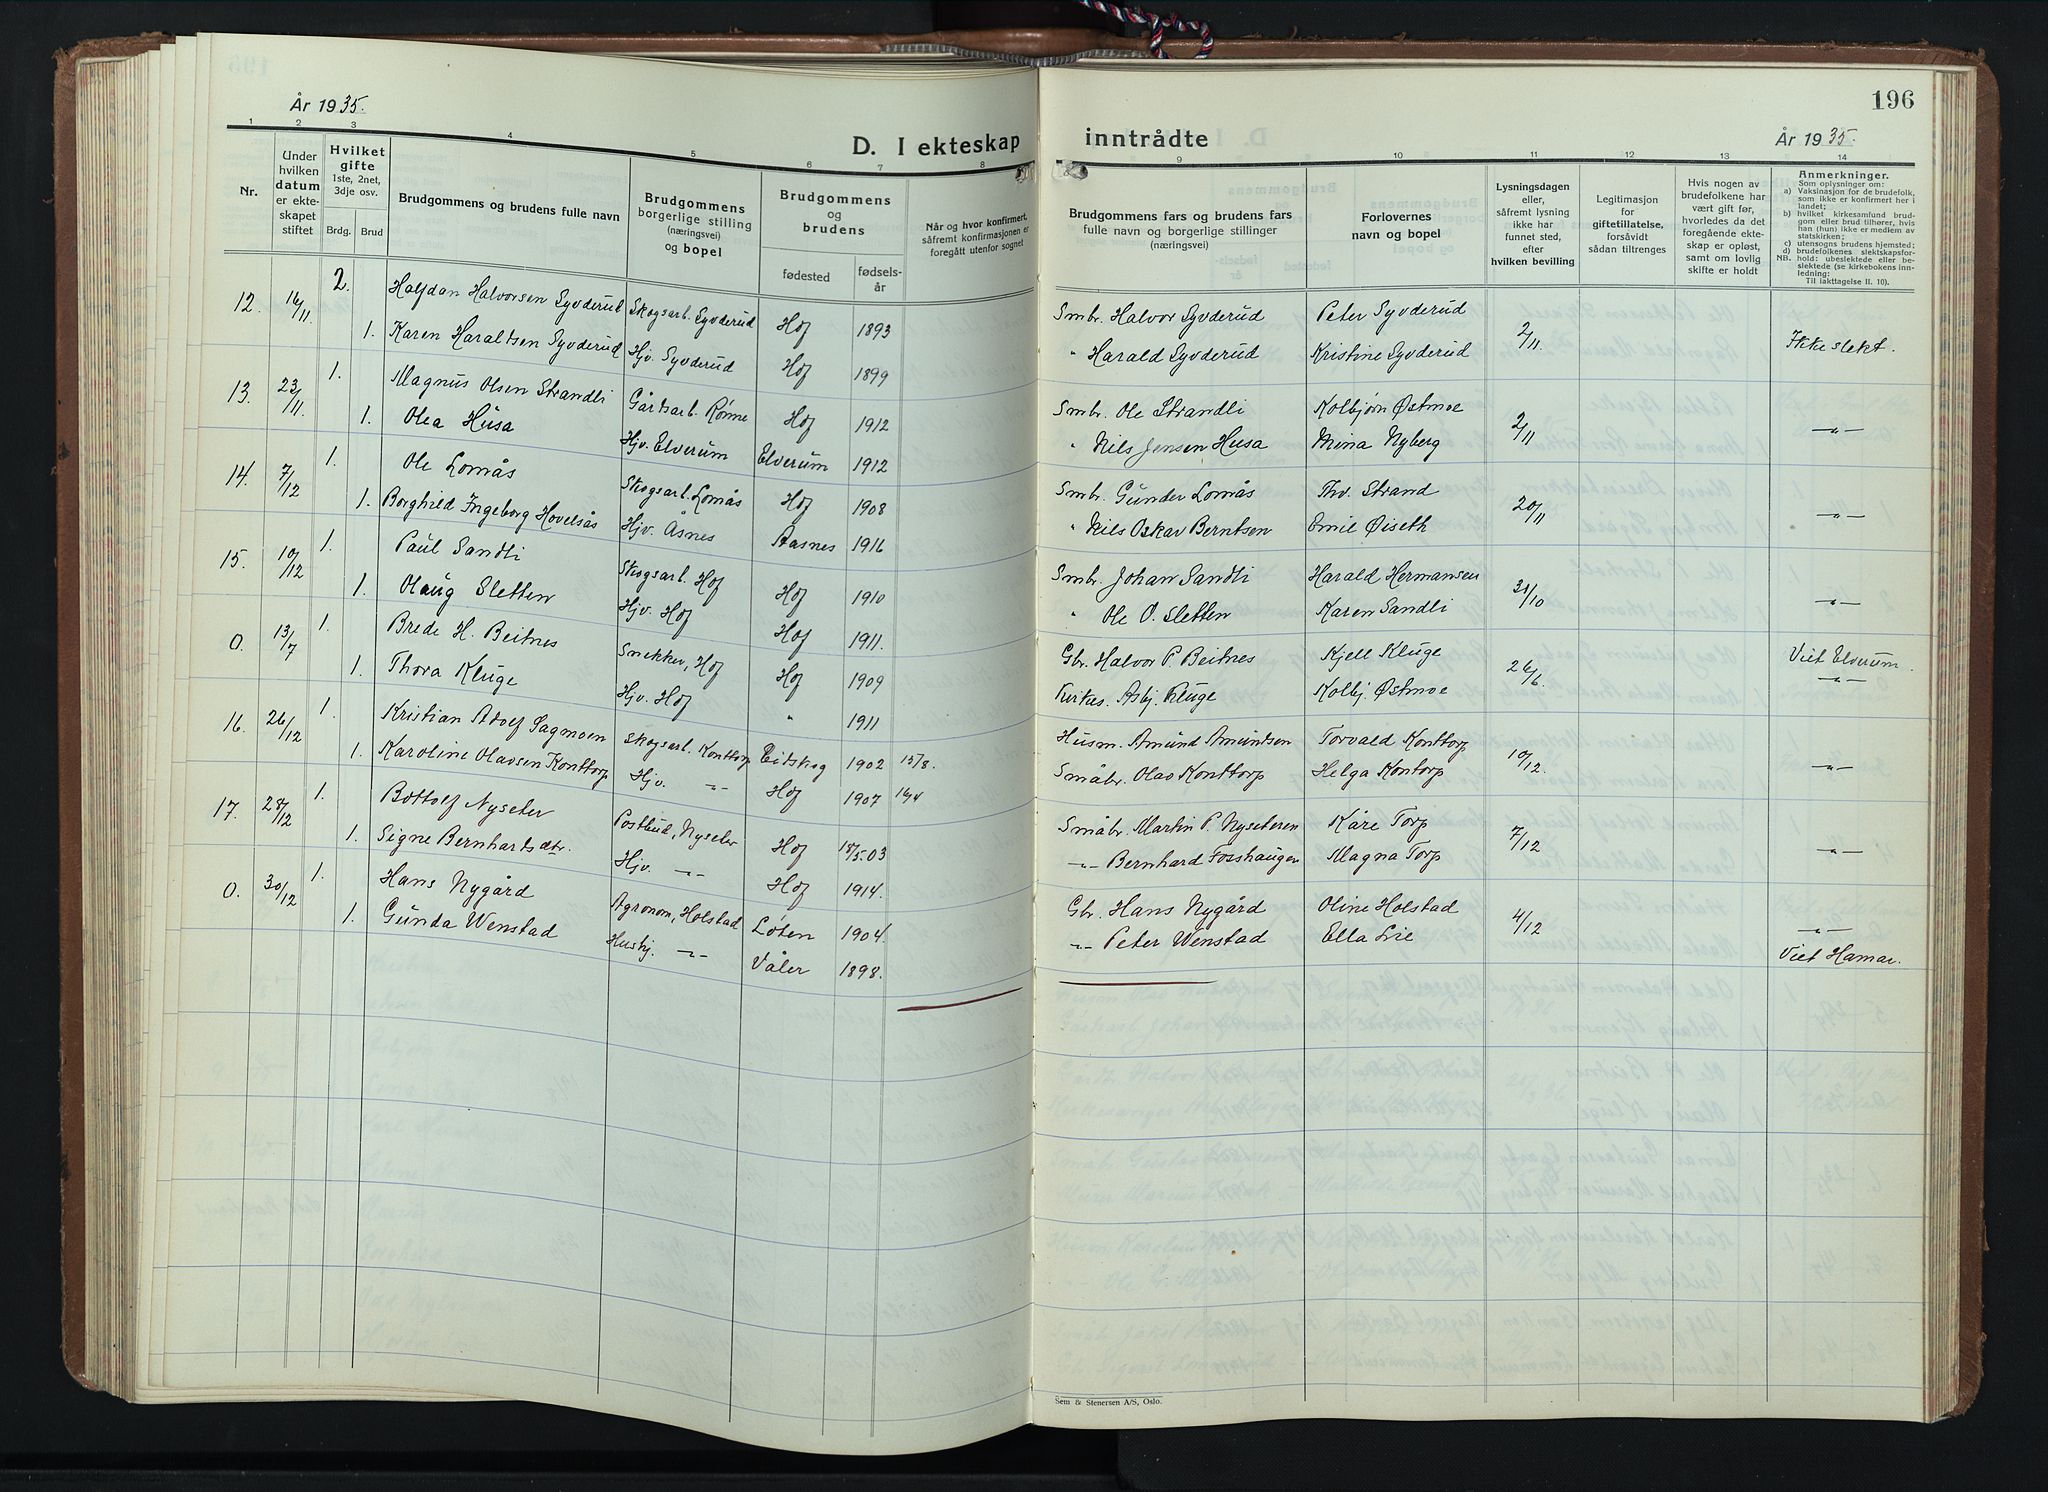 196
År 1935.
D. I ekteskap inntrådte
År 1935.
1 2 3 4 5 6 7 8 9 10 11 12 13 14
Nr.
Under hvilken datum er ekteskapet stiftet
Hvilket gifte 1ste, 2net, 3dje osv.
Brdg. Brud
Brudgommens og brudens fulle navn
Brudgommens borgerlige stilling (næringsvei) og bopel
Brudgommens og brudens
fødested
fødselsår
Når og hvor konfirmert, såfremt konfirmasjonen er foregått utenfor sognet
Brudgommens fars og brudens fars fulle navn og borgerlige stillinger (næringsvei)
Forlovernes navn og bopel
Lysningsdagen eller, såfremt lysning ikke har funnet sted, efter hvilken bevilling
Legitimasjon for giftetillatelse, forsåvidt sådan tiltrenges
Hvis nogen av brudefolkene har vært gift før, hvorledes da det foregående ekteskap er opløst, samt om lovlig skifte er holdt
Anmerkninger.
Som oplysninger om:
a) Vaksinasjon for de brudefolk, som ikke er konfirmert her i landet;
b) hvilket kirkesamfund brudgom eller brud tilhører, hvis han (hun) ikke er medlem av statskirken;
c) utensogns brudens hjemsted;
d) brudefolkenes slektskapsforhold: ubeslektede eller beslektede (se kirkebokens innledning:
NB. Til iakttagelse II. 10).
12. 16/11 2. Halfdan Halvorsen Syverud Skogsarb. Syverud Hof 1893 Smbr. Halvor Syverud Peter Syverud 2/11. Ikke slekt.
1. Karen Haraldsen Syverud Hjv. Syverud Hof 1899 " Harald Syverud Kristine Syverud
13. 23/11. 1. Magnus Olsen Strandli Gårdsarb. Rønne Hof 1912 Smbr. Ole Strandli Kolbjørn Østmoe 2/11 -"-
1. Olea Husa Hjv. Elverum Elverum 1912 " Nils Jensen Husa Mina Nyberg
14. 7/12 1. Ole Lomås Skogsarb. Lomås Hof 1908 Smbr. Gunder Lomås Thv. Strand 20/11 -"-
1. Borghild Ingeborg Hovelsås Hjv. Åsnes Aasnes 1916 " Nils Oskar Berntsen Emil Øiseth
15. 10/12 1. Paul Sandli Skogsarb. Hof Hof 1910 Smbr. Johan Sandli Harald Hermansen 31/10 -"-
1. Olaug Sletten Hjv. Hof Hof 1911. " Ole O. Sletten Karen Sandli
0. 13/7 1. Brede H. Beitnes Snekker, Hof Hof 1909 Gbr. Halvor P. Beitnes Kjell Kluge 26/6. Viet Elverum.
1. Thora Kluge Hjv. Hof " 1911 Kirkes. Asbj. Kluge Kolbj. Østmoe -"-
16. 26/12 1. Kristian Adolf Sagmoen Skogsarb. Konttorp Eidskog 1902 15/8. Husm. Amund Amundsen Torvald Konttorp 10/12. -"-
1. Karoline Olavsen Konttorp Hjv. -"- Hof 1907 16/4 Småbr. Olav Konttorp Helga Kontorp
17. 28/12 1. Bottolf Nyseter Postbud, Nyseter Hof 18/5.03 Småbr. Martin P. Nyseteren Kåre Torp 7/12 -"-
1. Signe Bernhartsdtr. Hjv. -"- Hof 1914. -"- Bernhard Fosshaugen Magna Torp
0. 30/12 1. Hans Nygård Agronom, Holstad Løten 1904. Gbr. Hans Nygård Oline Holstad 4/12 -"-
1. Gunda Wenstad Husbj. -"- Våler 1898. -"- Peter Wenstad Ella Lie Viet Hamar.
Sem & Stenersen A/S, Oslo.